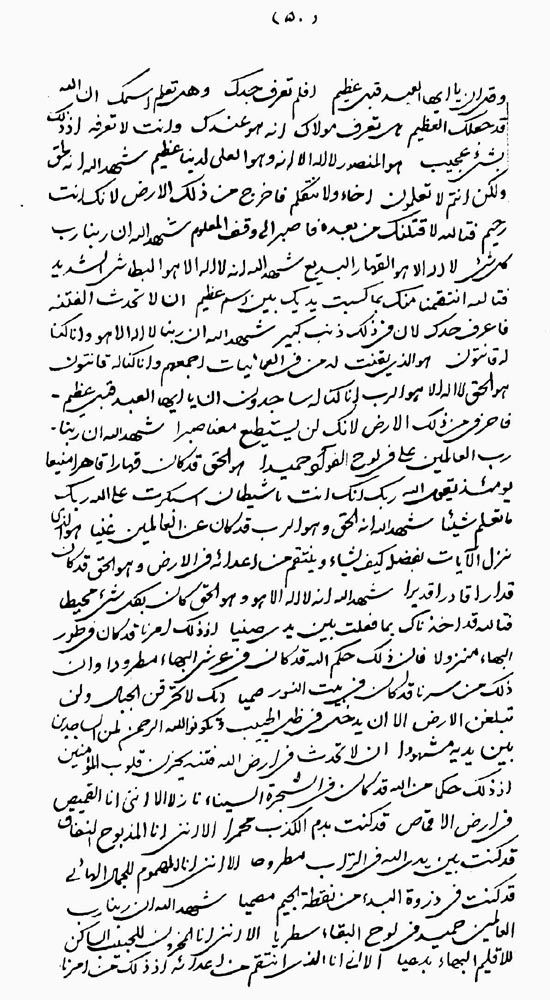 (٥٠)
وقد ان يا ايها العبد قمى عظيم افلم تعرف حدك وهل تعلم اسمك ان الله
قد جعلك العظيم هل تعرف مولاك انه هو عندك وانت لا تعرفه اذ ذلك
لشئ عجيب هو المنصور لا اله الا انه وهو العلى لدينا عظيم شهد الله انه لحق
ولكن انتم لا تعلمون فاخرج من ذلك الارض لانك انت
رجيم فتالله لاقتلنك من بعده فاصبر الى وقت المعلوم شهد الله ان ربنا رب
كل شئ لا اله الا هو القهار البديع شهد الله انه لا اله الا هو البطاش الشديد
فتالله انتقمنا منك بما كسبت يديك بين اسم عظيم ان لا تحدث الفتنه
فاعرف حدك لان فى ذلك ذنب كبير شهد الله ان ربنا لا اله الا هو وانا كنا
له قانتون هو الذى يقنت له من فى اجمعهم وانا كنا له قانتون
هو الحق لا اله الا هو الرب انا كنا له ساجدون ان يا ايها العبد قمى عظيم
فاخرج من ذلك الارض لانك لن يستطيع معنا صبرا شهد الله ان ربنا
رب العالمين على فى لوح حميدا هو الحق قد كان قهارا قاهرا منيعا
يومئذ يقول الله ربك انك انت يا شيطان استكبرت على الله ربك
ما تعلم شيئا شهد الله انه الحق وهو الرب قد كان عن العالمين غنيا هو الذى
نزل الآيات بفضله كيف يشاء وينتقم من اعدائه فى الارض وهو الحق قد كان
قدارا قادرا قديرا شهد الله انه لا اله الا هو وهو الحق كان بكل شئ محيطا
فتالله قد اخذناك بما فعلت بين يدى اذ ذلك امرنا قد كان فى طور
البهاء منزولا فان ذلك حكم الله قد كان فى عرش البهاء مطرودا وان
ذلك من سرنا قد كان فى بيت النور انك لا تخرقن الجبال ولن
تبلغن الارض الا ان يدخل فى ظل الحبيب وتكونوا لله الرحمن لمن الساجدين
بين يديه مشهودا ان لا تحدث فى ارض الله فتنه يحزن قلوب المؤمنين
اذ ذلك حكما من الله قد كان فى الشجرة السيناء نازلا الا اننى انا القميص
فى ارض قد كنت بدم الكذب محمرا الا اننى انا المذبوح
قد كنت بين يدى الله فى التراب مطروحا الا اننى انا المهموم للجمال الهائى
قد كنت فى ذروة البدء من نقطة الجيم شهد الله ان ربنا رب
العالمين حميد فى لوح البقاء سطريا الا اننى انا المحزون للحبيب الساكن
للاقليم البهاء بدعيا الا انى انا الذى انتقم من اعدائه اذ ذلك من امرنا